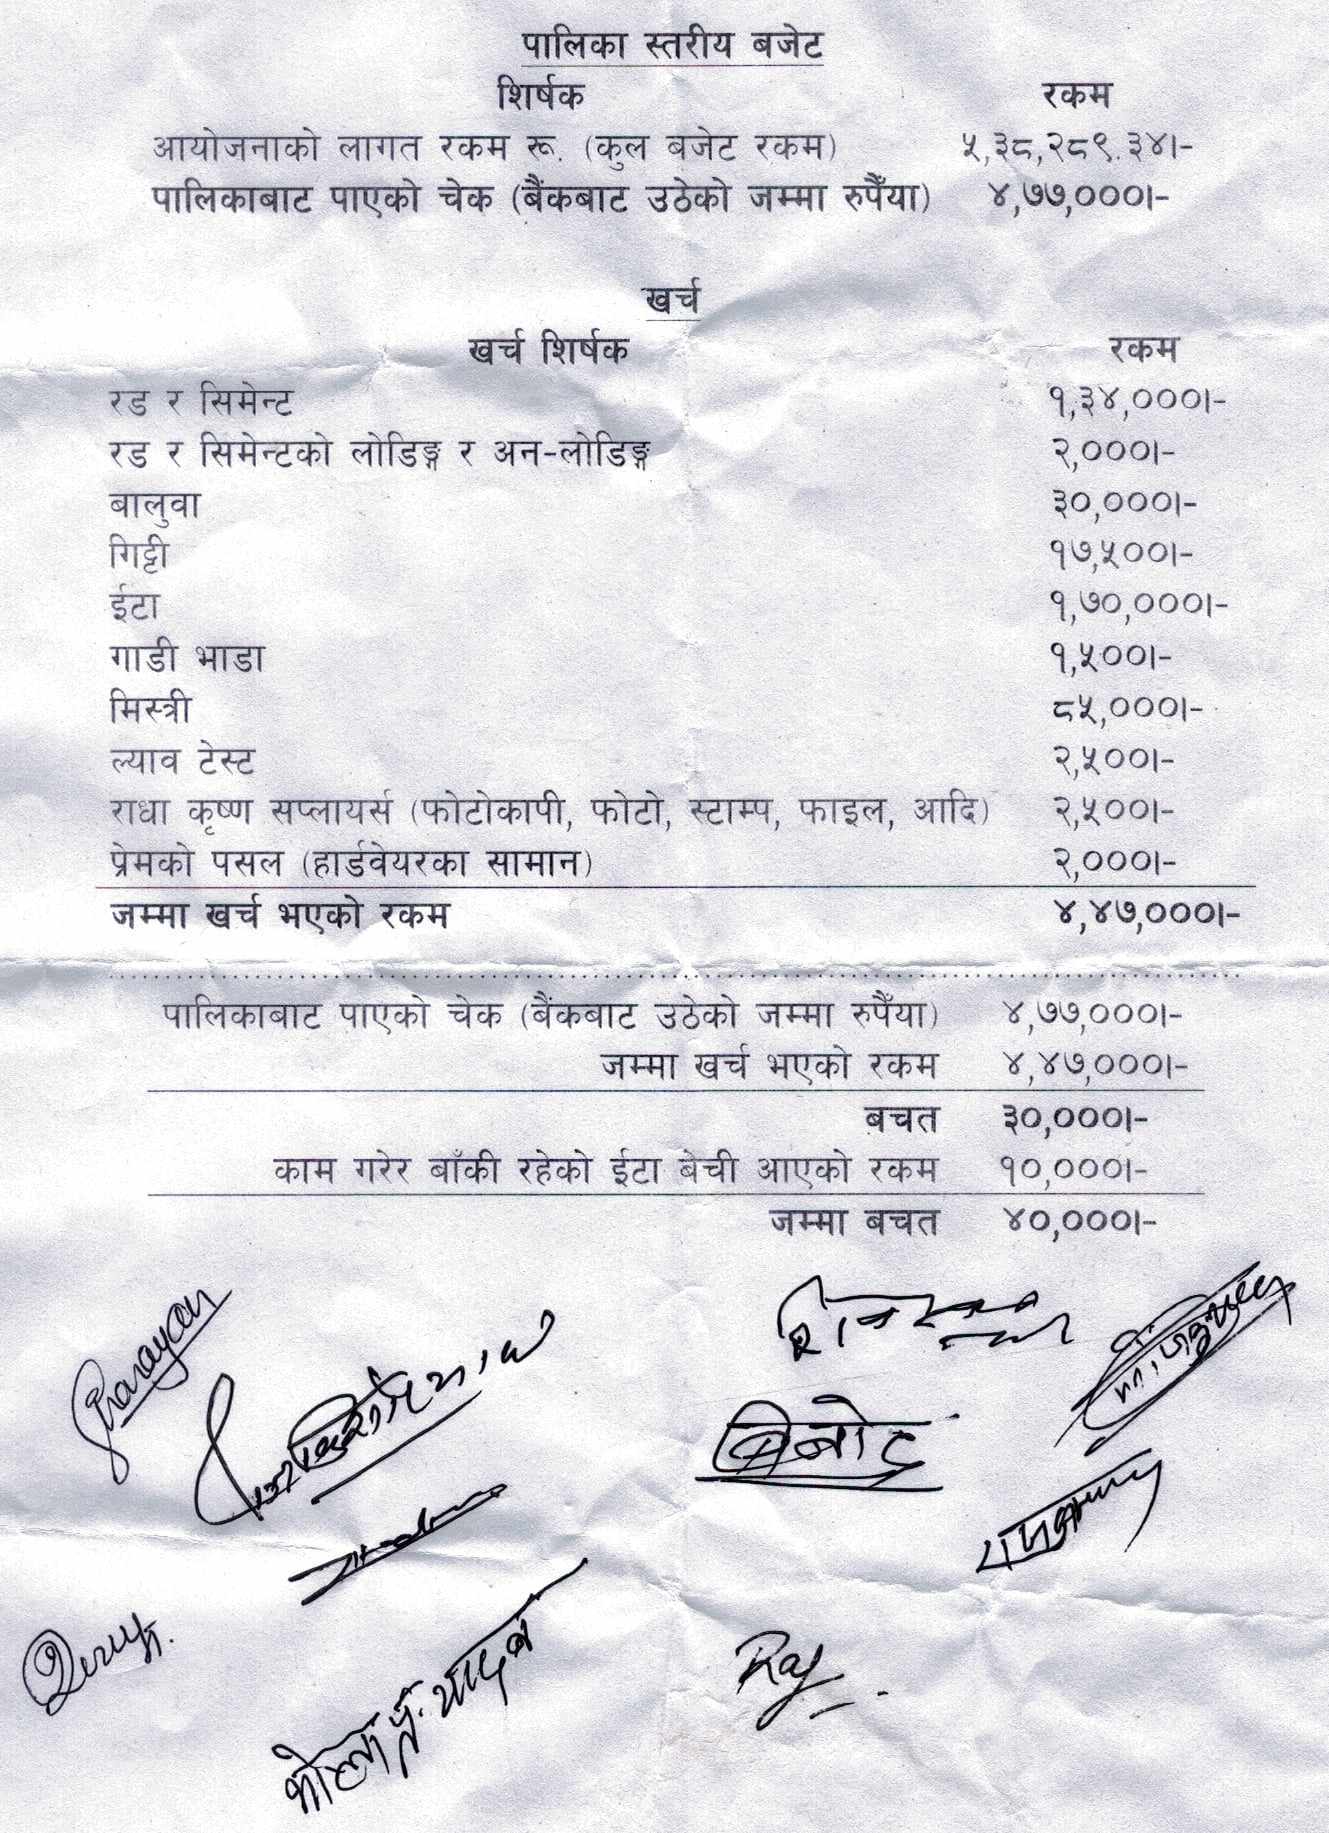 पालिका स्तरीय बजेट
शिर्षक रकम
आयोजनाको लागत रकम रू. (कुल बजेट रकम) ५,३८,२८९.३४।-
पालिकाबाट पाएको चेक (बैंकबाट उठेको जम्मा रुपैँया) ४,७७,०००।-
खर्च
खर्च शिर्षक रकम
रड र सिमेन्ट १,३४,०००।-
रड र सिमेन्टको लोडिङ्ग र अन-लोडिङ्ग २,०००।-
बालुवा ३०,०००।-
गिट्टी १७,५००।-
ईटा १,७०,०००।-
गाडी भाडा १,५००।-
मिस्त्री ८५,०००।-
ल्याव टेस्ट २,५००।-
राधा कृष्ण सप्लायर्स (फोटोकापी, फोटो, स्टाम्प, फाइल, आदि) २,५००।-
प्रेमको पसल (हार्डवेयरका सामान) २,०००।-
जम्मा खर्च भएको रकम ४,४७,०००।-
पालिकाबाट पाएको चेक (बैंकबाट उठेको जम्मा रुपैँया) ४,७७,०००।-
जम्मा खर्च भएको रकम ४,४७,०००।-
बचत ३०,०००।-
काम गरेर बाँकी रहेको ईटा बेची आएको रकम १०,०००।-
जम्मा बचत ४०,०००।-
बिनोद
Raj